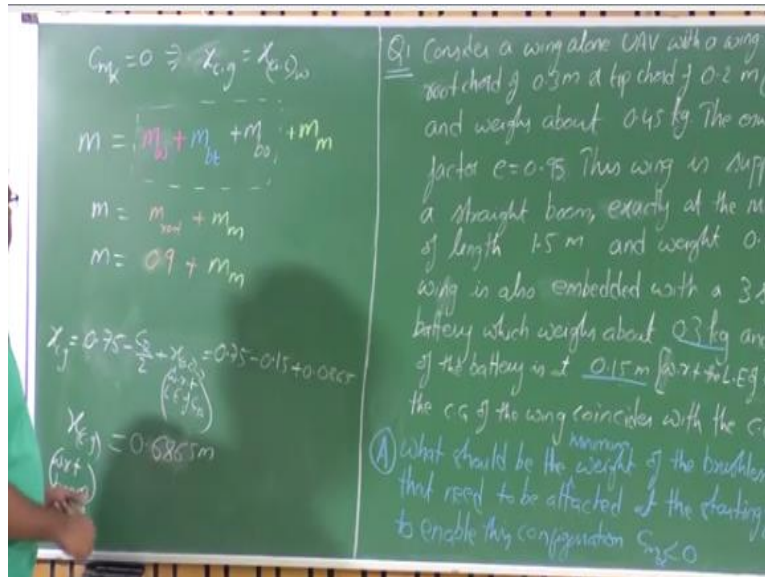 C_mα = 0 ⇒ X_c.g = X_(a.c)w
m = m_w + m_bt + m_bo + m_m
m = + m_m
m = 0.9 + m_m
= 0.75 - + = 0.75 - 0.15 + 0.0865
(w.r.t
= 0.6865m
(w.r.t
Q1 Consider a wing alone UAV with a wing
root chord of 0.3m & tip chord of 0.2 m
and weighs about 0.45 kg The
factor e=0.95 This wing is supp
a straight boom, exactly at the
of length 1.5 m and weight 0.
wing is also embedded with a 3
battery which weighs about 0.3 kg and
of the battery is + 0.15m w.r.t L.E of
the C.G of the wing coincides with the
(A) What should be the minimum weight of the brushless
that need to be attached at the starting
to enable this configuration C_mα<0